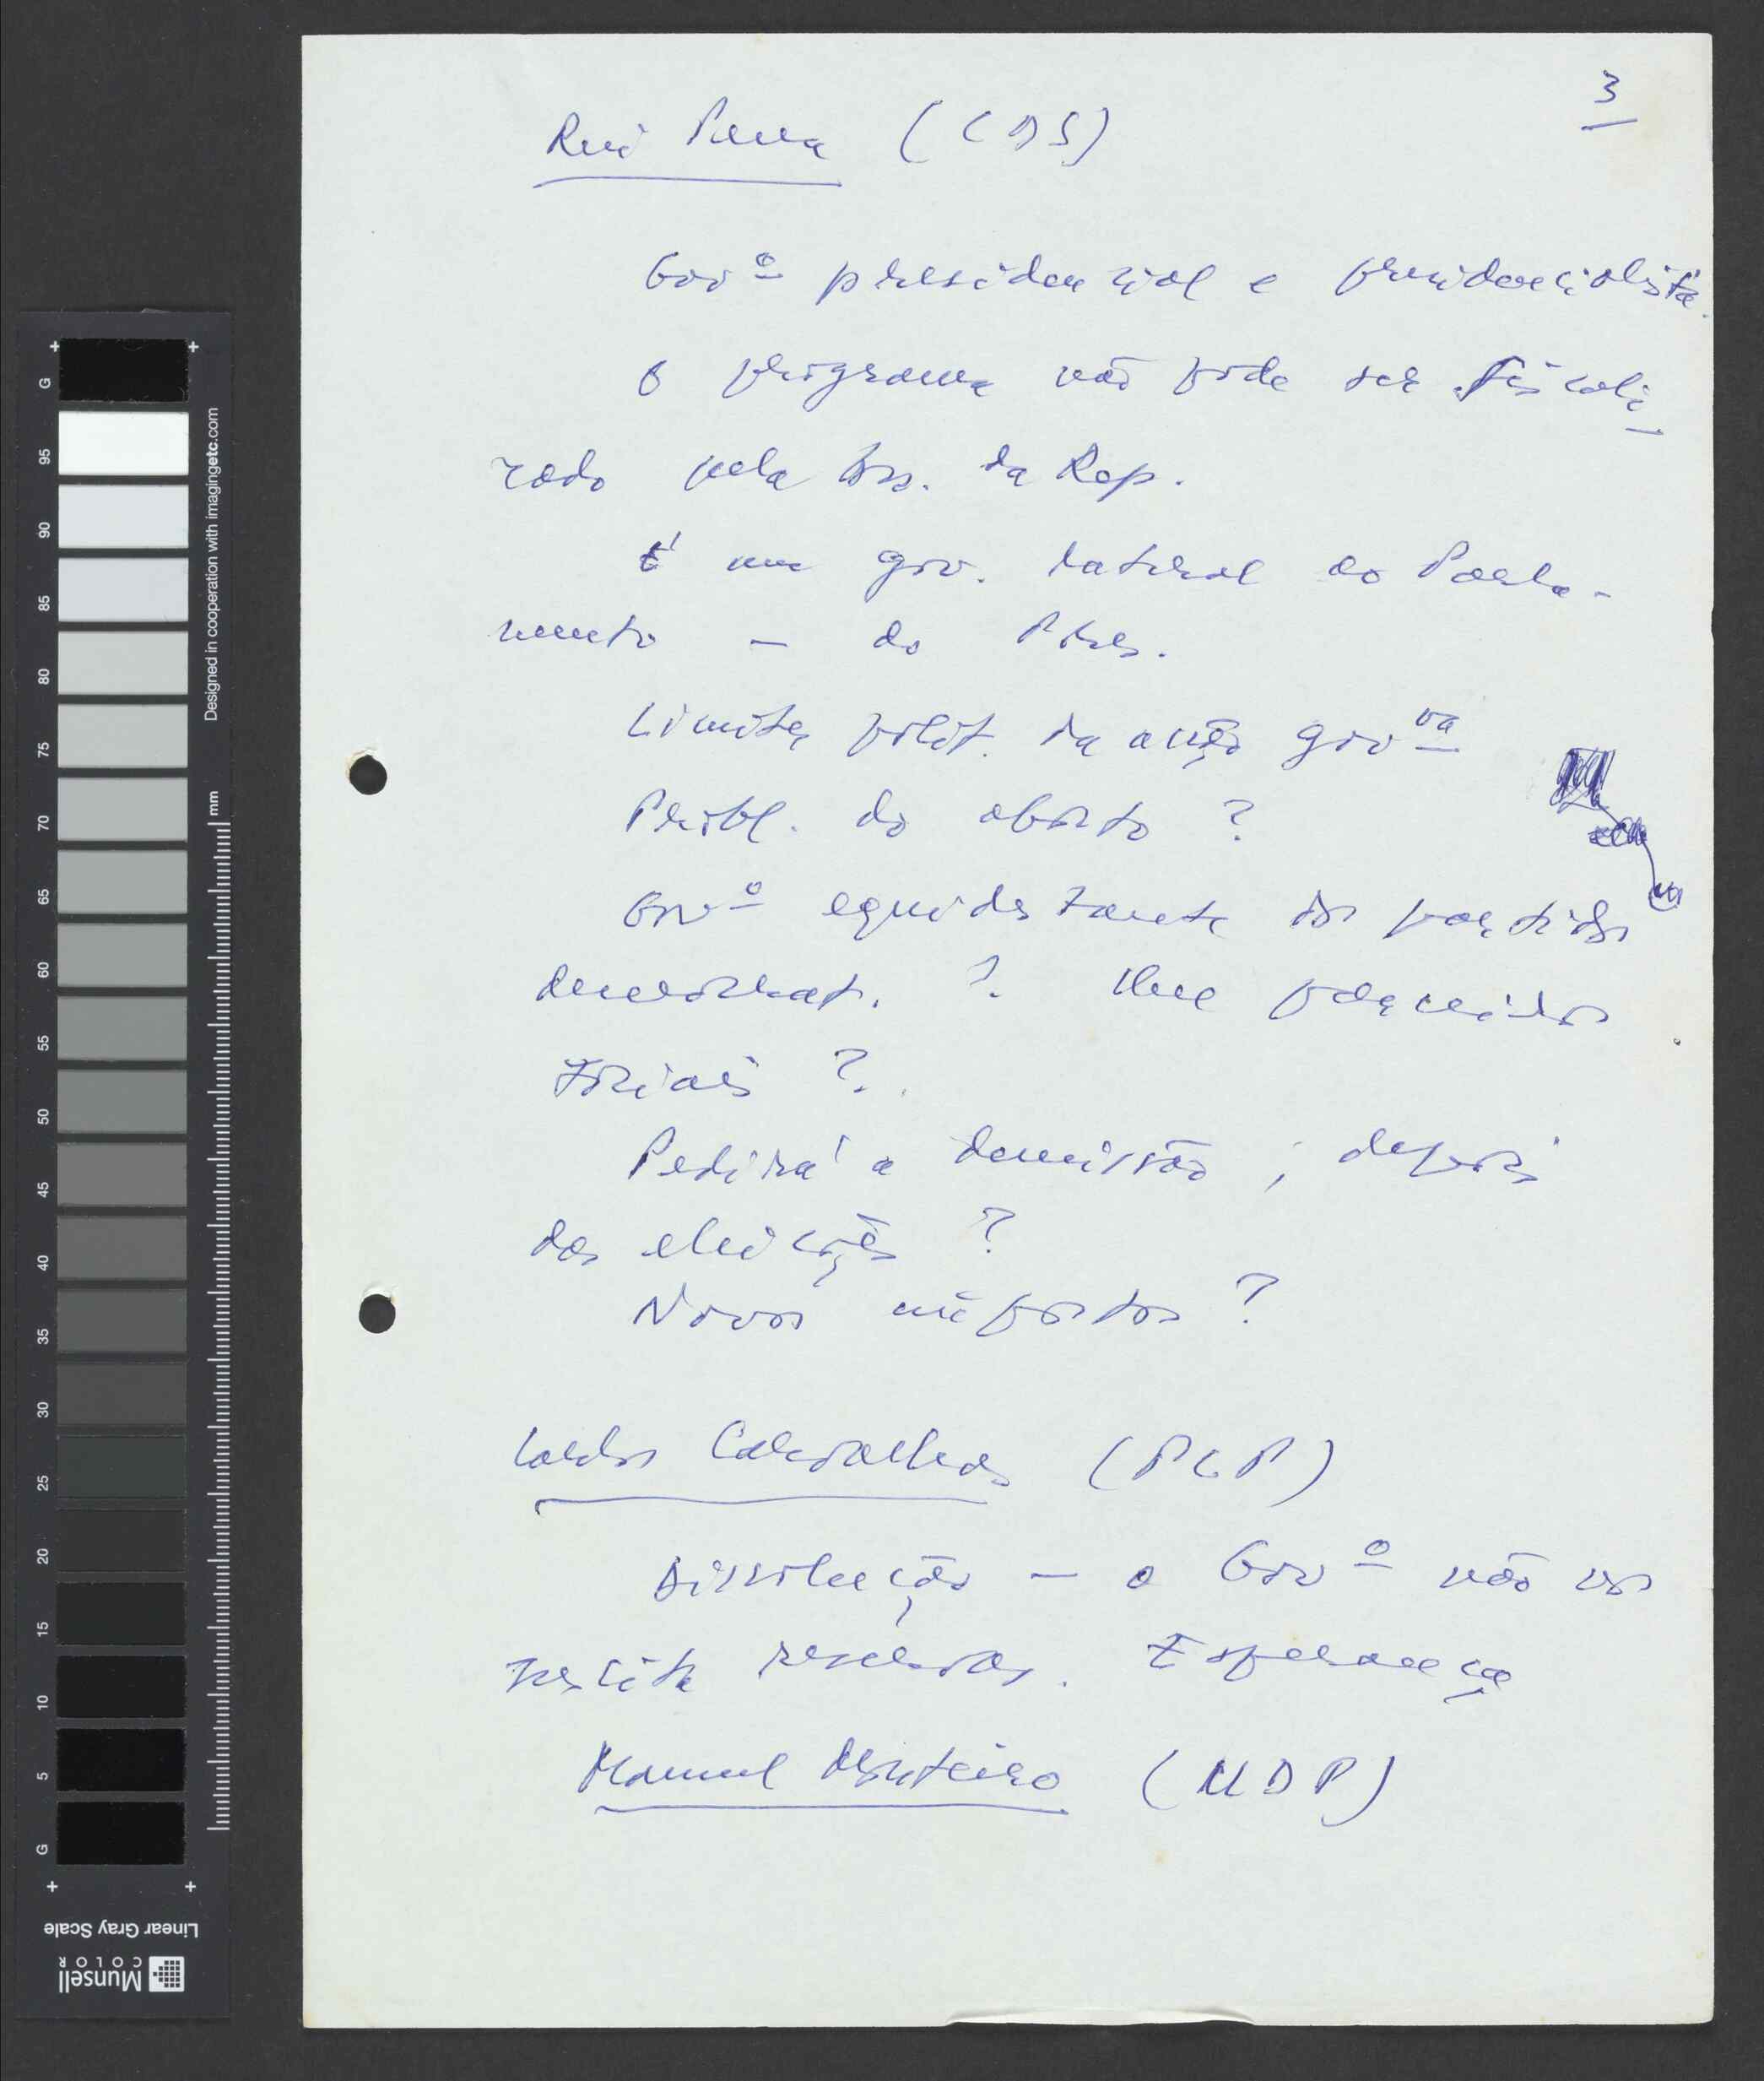 3
Rui Pena (CDS)
Govº presidencial e presidencialista.
O programa não pode ser fiscali-
zado pela Ass. da Rep.
É um gov. lateral ao Parla-
mento - do Pres.
Limites polít. da acção govva
Probl. do aborto?
Govº equidistante dos partidos
democrat. ? Que parceiros
sociais ?
Pedirá a demissão, depois
das eleições ?
Novos impostos ?
Carlos Carvalhas (PCP)
Dissolução - o Govº não vos
reservas. Esperança
Manuel Monteiro (MDP)
G
95
90
85
80
75
70
65
60
55
50
45
40
35
30
25
20
15
10
5
G
mm
Designed in cooperation with imagingetc.com
Linear Gray Scale
Munsell
COLOR